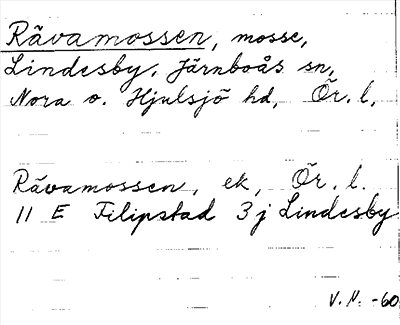 Rävamossen, mosse,
Lindesby, Järnboås sn,
Nora o. Hjulsjö hd, Ör. l.
Rävamossen, ek, Ör. l.
11 E Filipstad 3 j Lindesby
V. N. -60